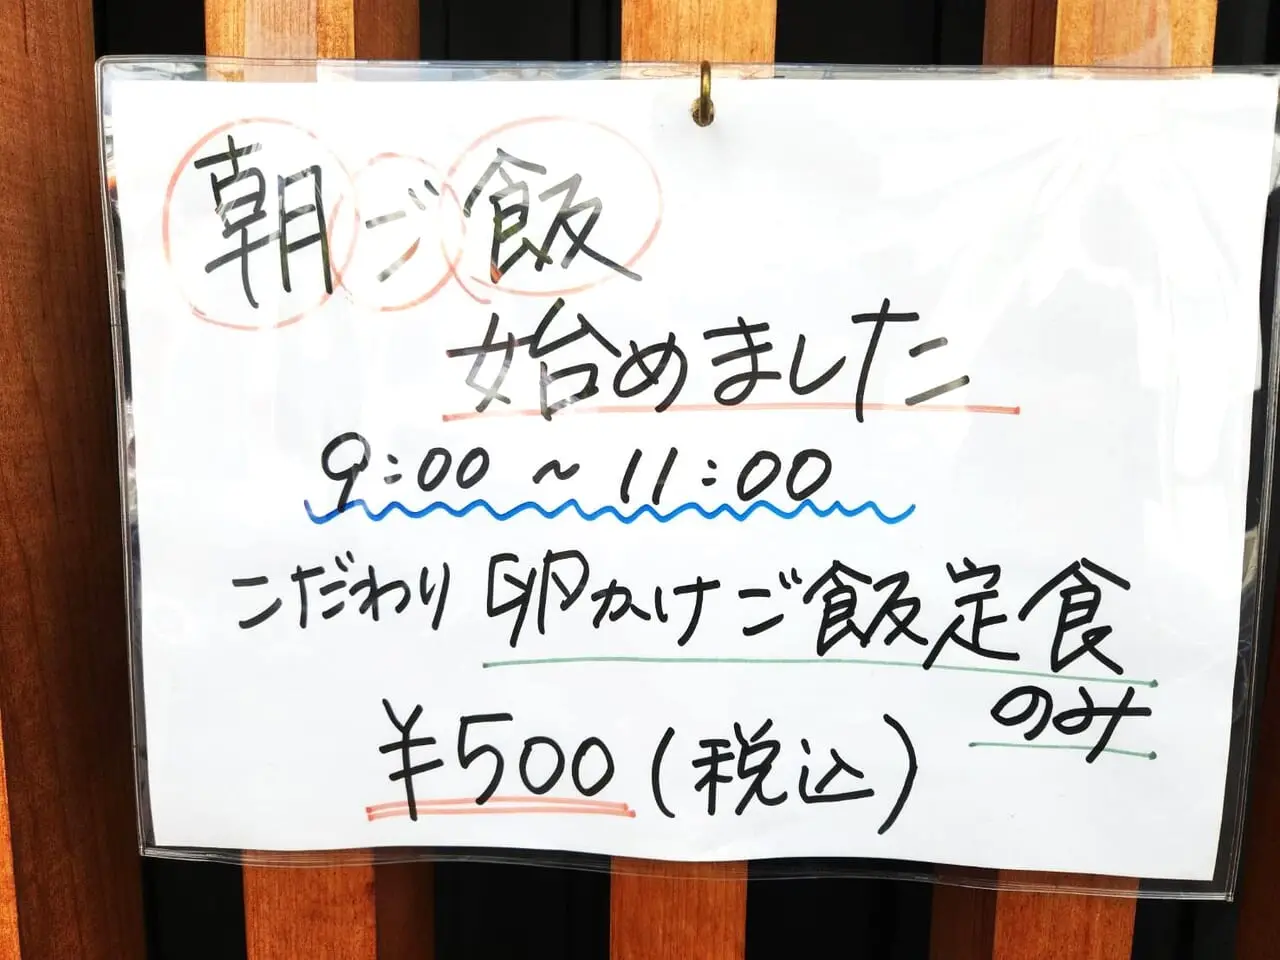 朝ご飯
始めました
9:00 ~ 11:00
こだわり 卵かけご飯定食
のみ
¥500(税込)